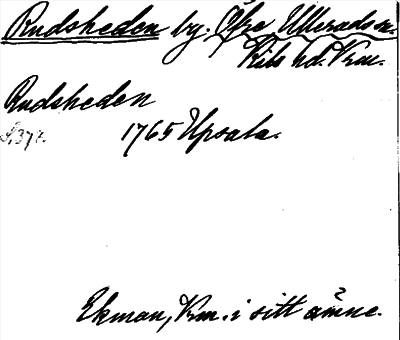 Rudsheden by. Övre Ulleruds sn.
Kils hd. Vrm.
Rudsheden
1765 Upsala.
Ekman, Vrm. i sitt ämne.